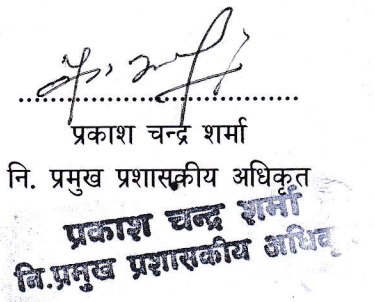 ..............................................
प्रकाश चन्द्र शर्मा
नि. प्रमुख प्रशासकीय अधिकृत
प्रकाश चन्द्र शर्मा
नि.प्रमुख प्रशासकीय